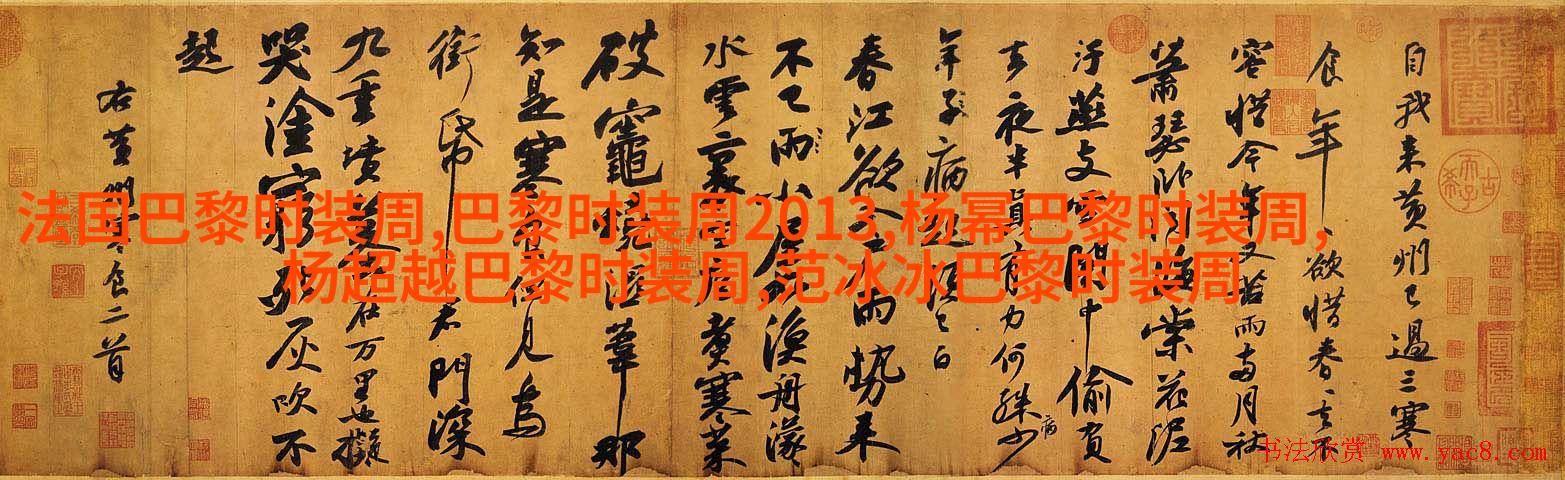 法国巴黎时装周,巴黎时装周2013,杨幂巴黎时装周,
杨超越巴黎时装周,范冰冰巴黎时装周
自我来黄州已過三寒
食年〻欲惜春〻去不
容惜今年又苦雨兩月秋
蕭瑟卧聞海棠花泥
汙燕支雪闇中偷負
去夜半真有力何殊少
病
年子病起頭已白
春江欲入户雨勢来
不已雨小屋如漁舟濛〻
水雲裏空庖煮寒菜
破竈燒溼葦那
知是寒食但見烏
銜帋君門深
九重墳墓在万里也擬
哭塗窮死灰吹不
起
右黄州寒食二首
书法欣赏 www.yac8.com